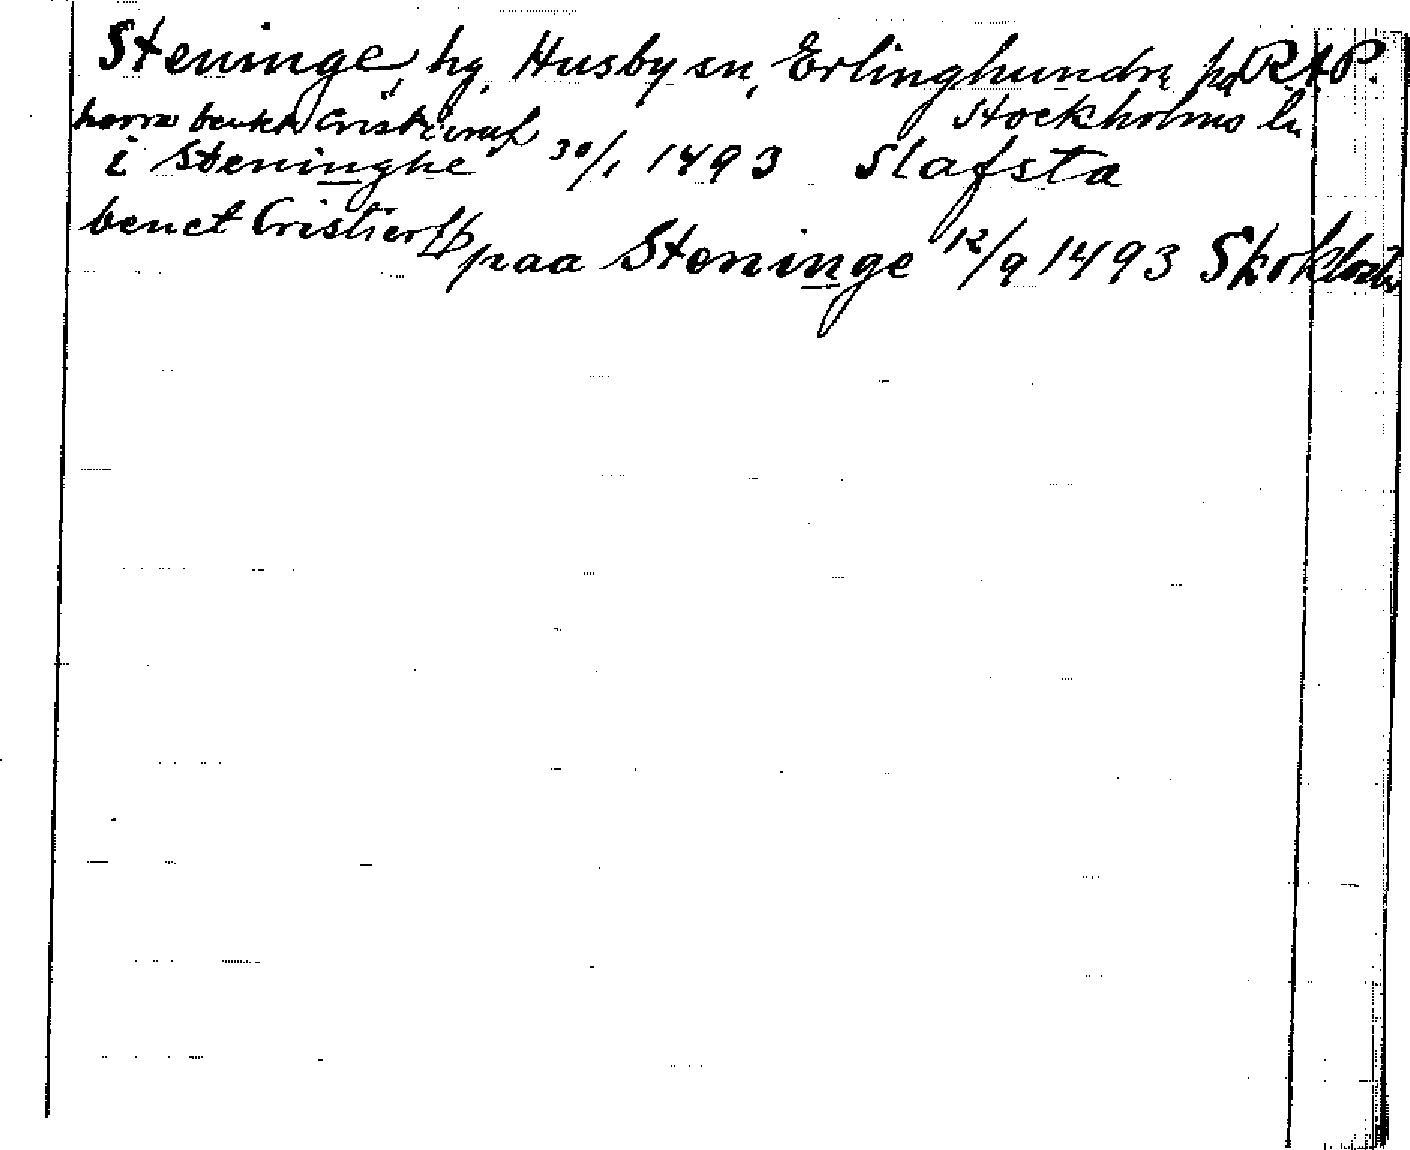 Steninge, hg, Husby sn, Erlinghundra hd RAP.
Stockholms ln
herra benkth Cristiernss
i Steninghe 30/1 1493 Slafsta
benct Cristierss paa Steninge 12/9 1493 Skokloster